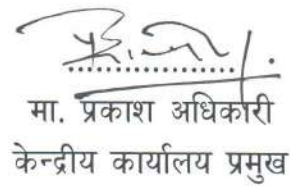 मा. प्रकाश अधिकारी
केन्द्रीय कार्यालय प्रमुख